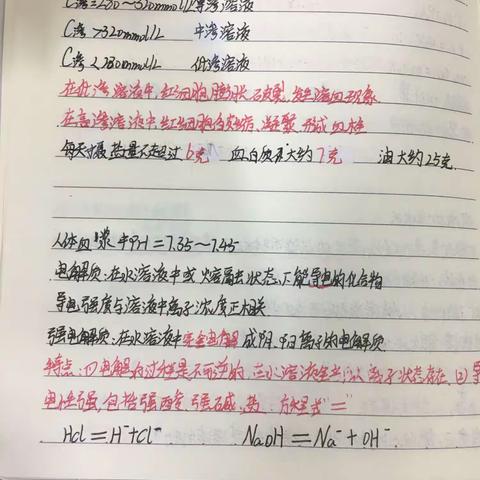 C渗=280~320mmol/L等渗溶液
C渗>320mmol/L 中渗溶液
C渗<280mmol/L 低渗溶液
在低渗溶液中,红细胞膨胀破裂,发生溶血现象
在高渗溶液中,红细胞皱缩,凝聚,形成血栓
每天摄盐量不超过6克 血白质大约7克 油大约25克.
人体血浆中PH=7.35~7.45
电解质:在水溶液中或熔融状态下能导电的化合物
导电强度与溶液中离子浓度正相关
强电解质:在水溶液中完全电解成阴、阳离子的电解质
特点:(1)电解的过程是不可逆的,在水溶液里以离子状态存在(2)导
电性强,包括强酸,强碱,盐.方程式"="
Hcl=H⁺+Cl⁻. NaOH=Na⁺+OH⁻.